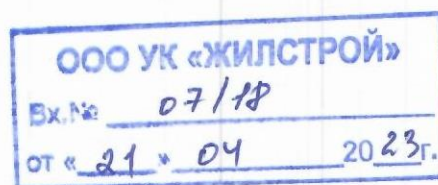 ООО УК «ЖИЛСТРОЙ»
Вх.№ 07/18
от « 21 » 04 2023г.